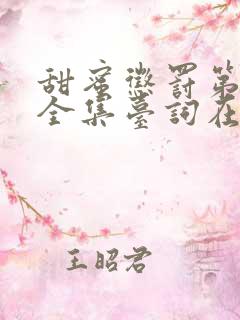 甜蜜懲罰第
全集臺詞在
王昭君